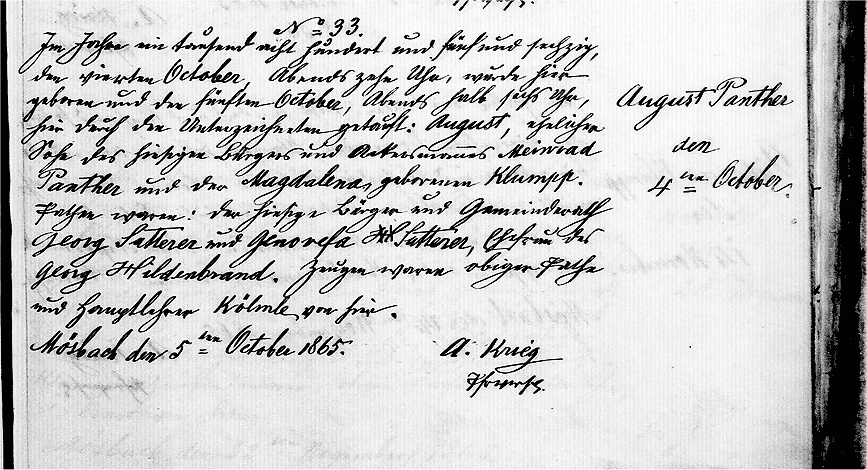 No 33.
Im Jahre ein tausend acht hundert und fünf und sechzig,
den vierten October, Abends zehn Uhr, wurde hier
geboren und den fünften October, Abends halb sechs Uhr,
hier durch den Unterzeichneten getauft: August, ehelicher
Sohn des hiesigen Bürgers und Ackersmannes Meinrad
Panther und der Magdalena, geborenen Klumpp.
Pathen waren: der hiesige Bürger und Gemeinderath
Georg Sutterer und Genovefa Sutterer, Ehefrau des
Georg Hildenbrand. Zeugen waren obiger Pathe
und Hauptlehrer Kölmle von hier.
Mösbach den 5ten October 1865.
A. Krieg
Pfarrverw.
August Panther
den
4ten October.